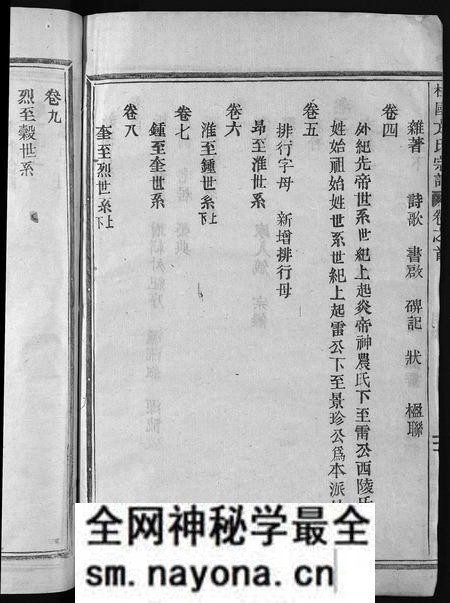 國方氏宗譜 卷之首
雜著 詩歌 書啟 碑記 狀 楹聯
卷四
外紀先帝世系世紀上起炎帝神農氏下至雷公西陵氏
姓始祖始姓世系世紀上起雷公下至景珍公爲本派
卷五
排行字母 新增排行母
昂至淮世系
卷六
淮至鍾世系上下
卷七
鍾至奎世系
卷八
奎至烈世系上下
卷九
烈至穀世系
全网神秘学最全
sm.nayona.cn